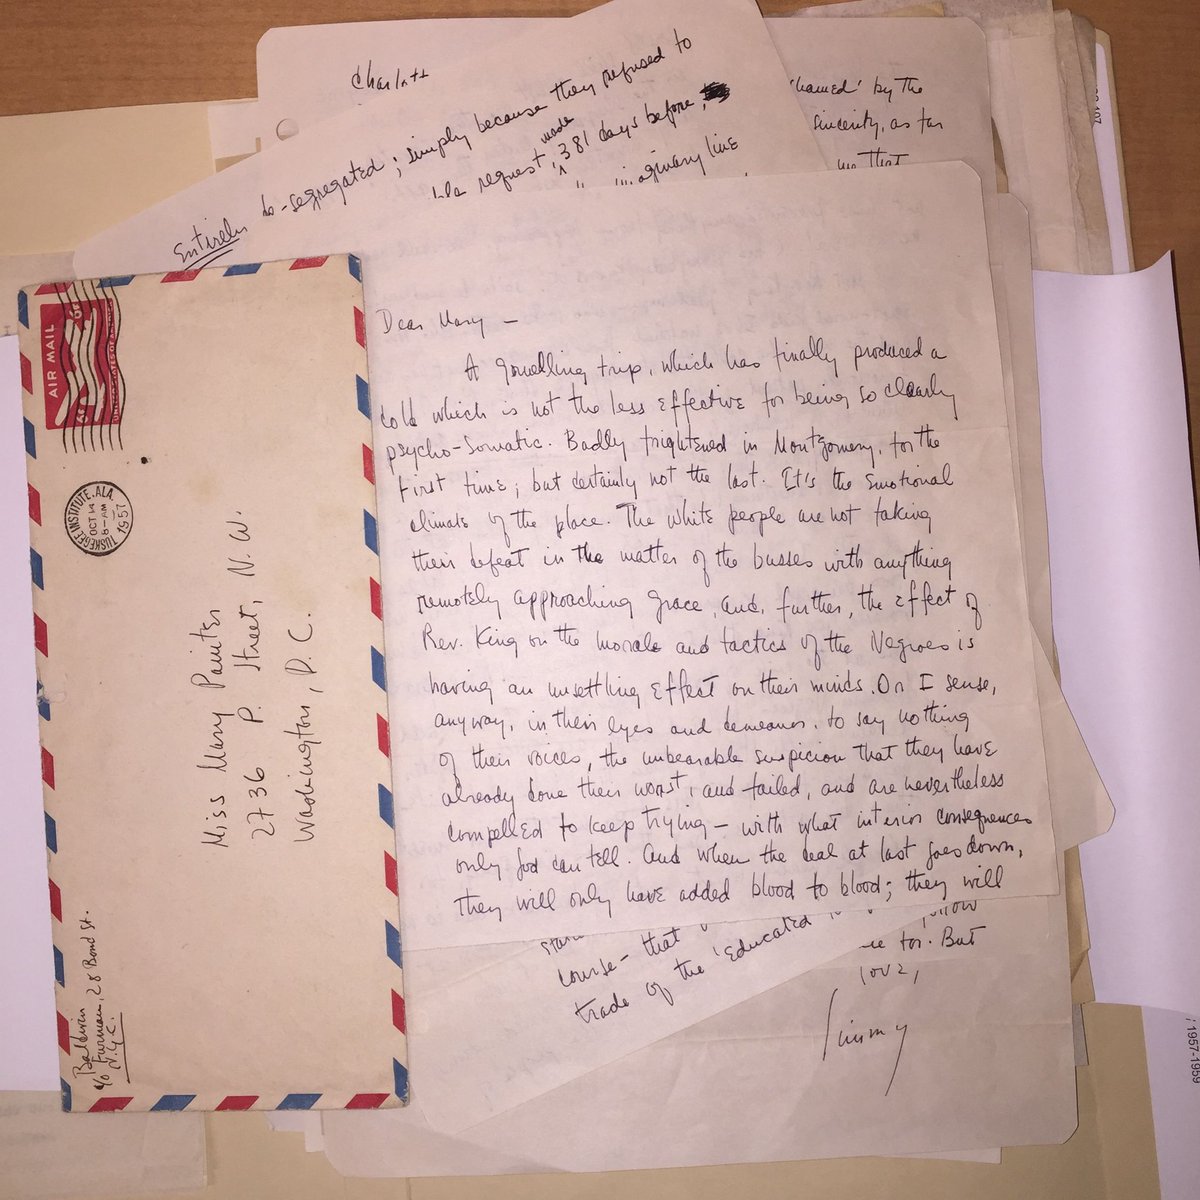 Charlotte
Entirely de-segregated; simply because they refused to
request made 381 days before,
imaginary line
by the
sincerity, as far
me that
Dear Mary —
A gruelling trip, which has finally produced a
cold which is not the less effective for being so clearly
psycho-somatic. Badly frightened in Montgomery, for the
first time; but certainly not the last. It's the emotional
climate of the place. The white people are not taking
their defeat in the matter of the busses with anything
remotely approaching grace, and, further, the effect of
Rev. King on the morale and tactics of the Negroes is
having an unsettling effect on their minds. Or I sense,
anyway, in their eyes and demeanor, to say nothing
of their voices, the unbearable suspicion that they have
already done their worst, and failed, and are nevertheless
compelled to keep trying — with what interior consequences
only God can tell. And when the deal at last goes down,
they will only have added blood to blood; they will
course — that
follow
trade of the 'educated
for. But
love,
Jimmy
AIR MAIL
6¢
UNITED STATES OF AMERICA
TUSKEGEE INSTITUTE, ALA.
OCT 14
8-AM
1957
Miss Mary Painter
2736 P. Street, N.W.
Washington, D.C.
Baldwin
c/o Furman, 28 Bond St.
N.Y.C.
1957-1959